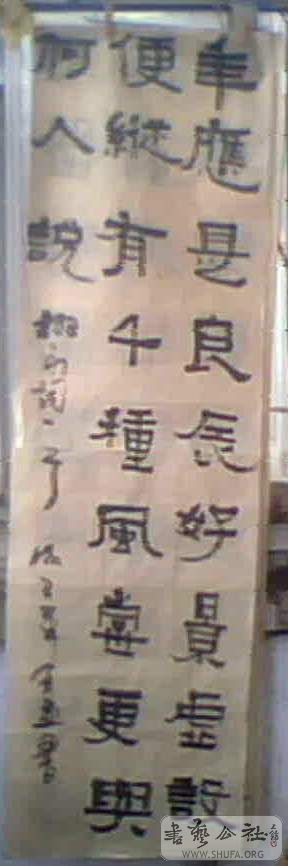 年應是良辰好景虛設
便縱有千種風當更與
何人說
柳永詞一
書藝公社
WWW.SHUFA.ORG